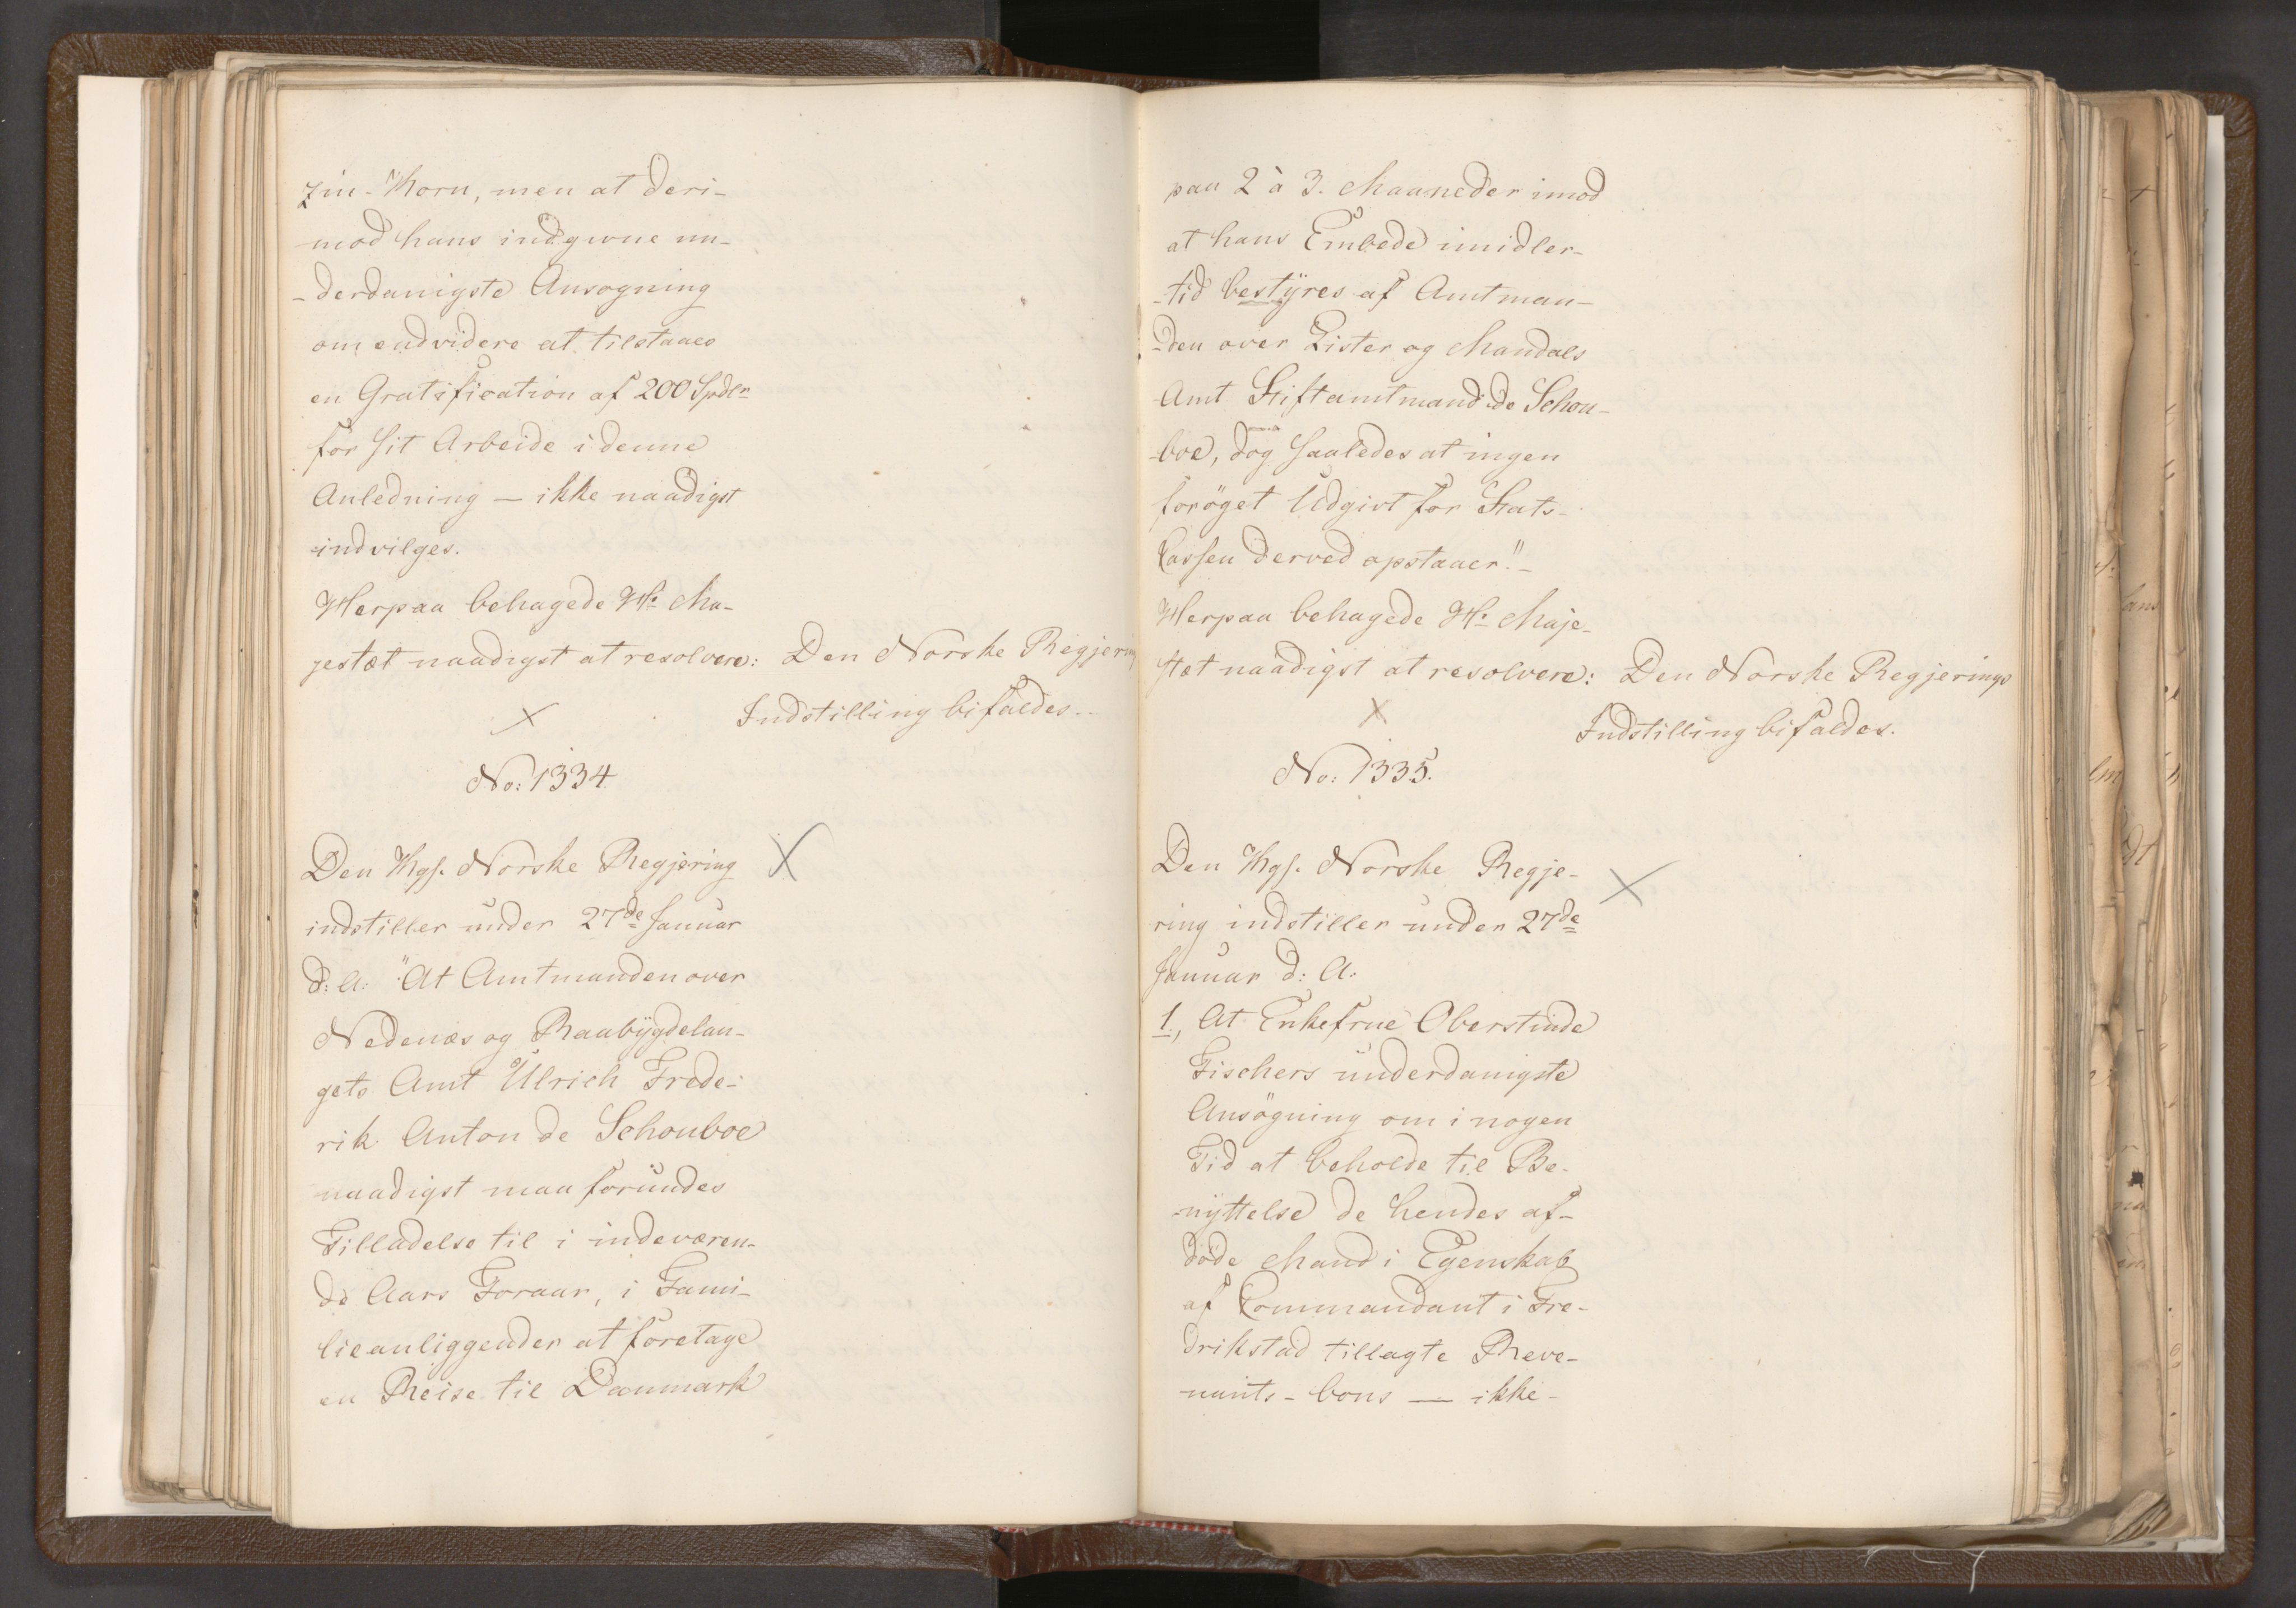 zin-Korn, men at deri-
mod hans indgivne un-
-derdanigste Ansogning
om endvidere at tilstaaes
en Gratification af 200 Spdlr
for sit Arbeide i denne
Anledning — ikke naadigst
indvilges.
Herpaa behagede Hs: Ma-
jestæt naadigst at resolvere: Den Norske Regjering
Indstilling bifaldes. -
No: 1334
Den Kgs. Norske Regjering
indstiller under 27de Januar
d: A: "At Amtmanden over
Nedenæs og Raabÿgdelau-
gets Amt Ulrich Frede-
rik Anton de Schouboe
naadigst maa forundes
Tilladelse til i indeværen-
de Aars Foraar, i Fami-
lieanliggender at foretage
en Reise til Danmark
paa 2 à 3. Maaneder imod
at hans Embede imidler-
-tid bestÿres af Amtman-
-den over Lister og Mandals
Amt Stiftamtmand de Schou-
-boe, dog saaledes at ingen
foröget Udgivt for Stats-
Cassen derved opstaaer." -
Herpaa behagede Hs: Maje-
stæt naadigst at resolvere: Den Norske Regjerings
Indstilling bifaldes.
No: 1335.
Den Kgs. Norske Regje-
ring indstiller under 27de
Januar d: A:
1, At Enkefrue Oberstinde
Fischers underdanigste
Ansögning om i nogen
Tid at beholde til Be-
-nÿttelse de hendes af-
döde Mand i Egenskab
af Commandant i Fre-
drikstad tillagte Reve-
-nuits-bons — ikke -